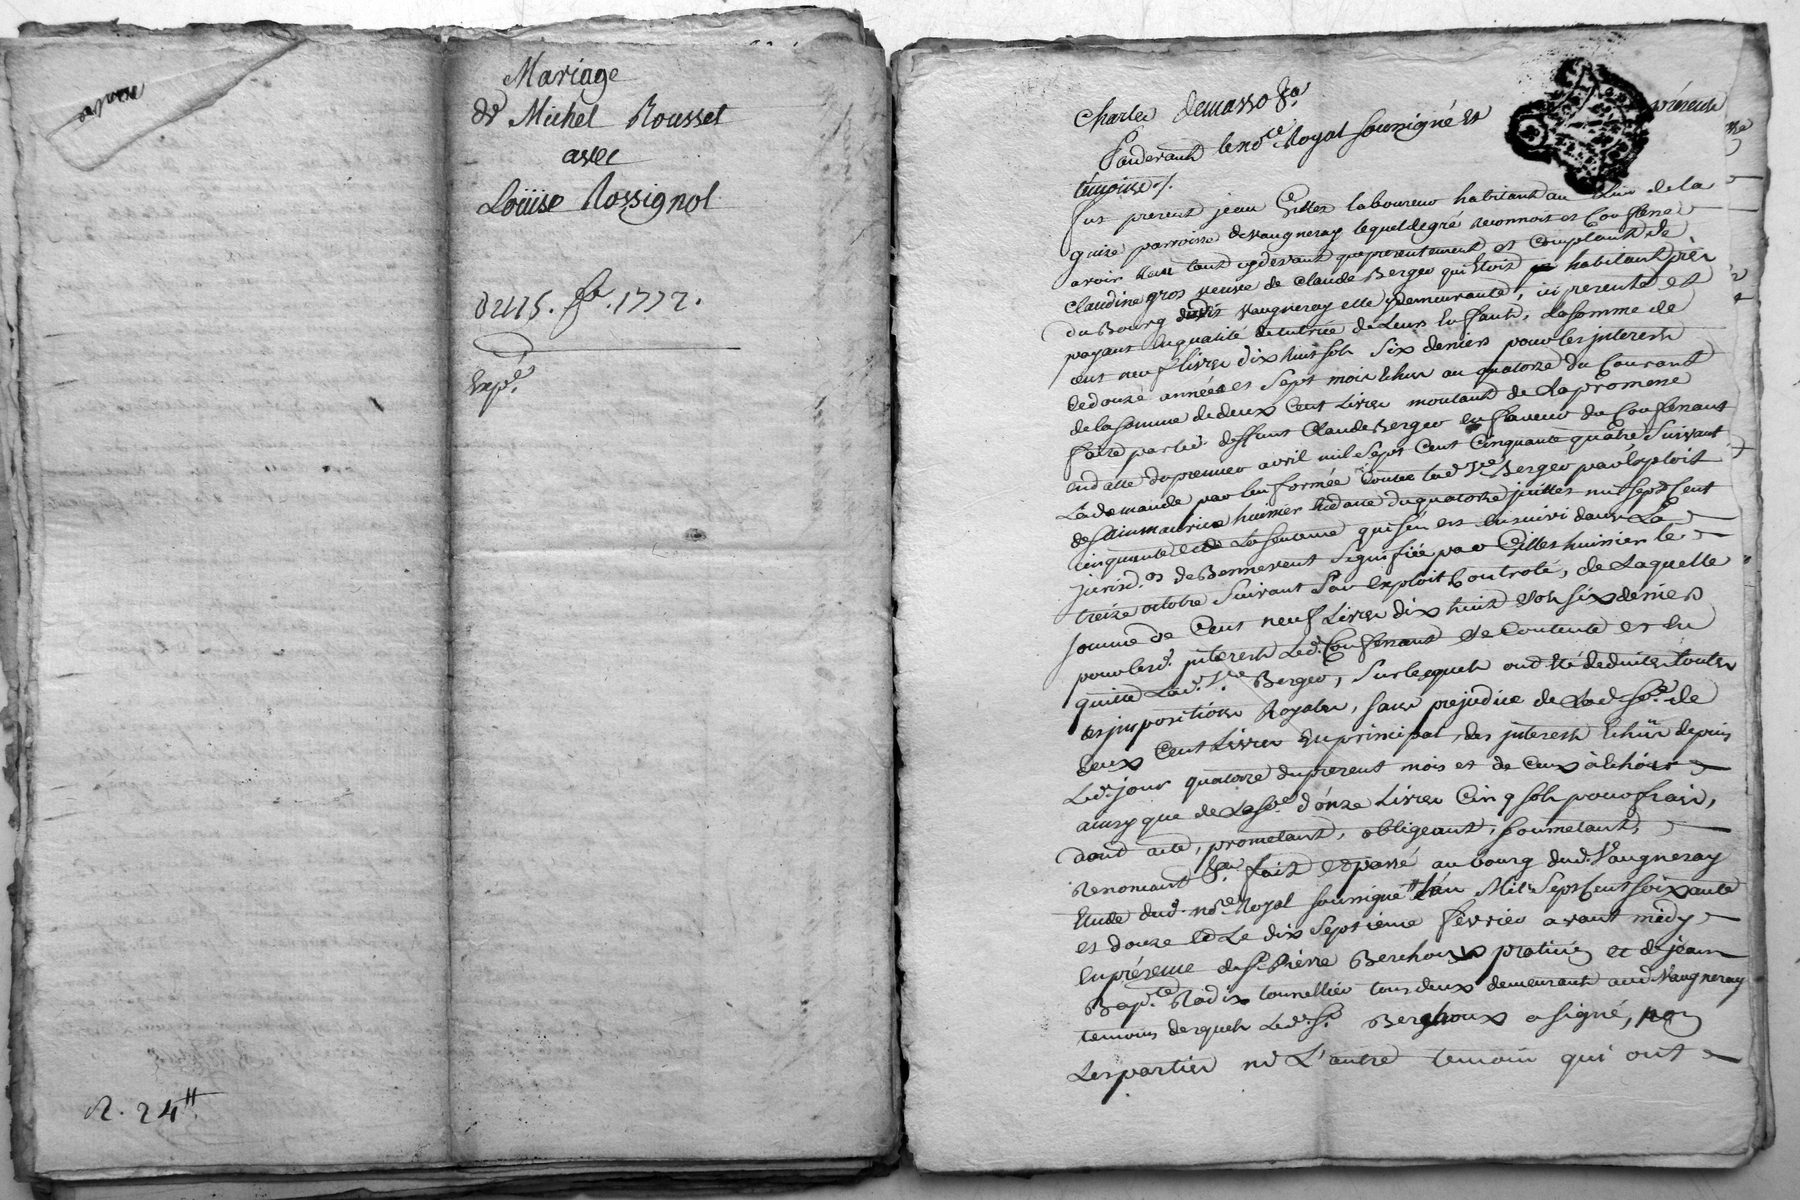 Mariage
de Michel Rousset
avec
Loüise Rossignol
du 15. fbr. 1772.
Exp.é
R. 24 ₶
Charles demasso
Pardevant le no.re Royal soussigné et présents
témoins
fut present jean Gilles laboureur habitant au lieu de la
paroisse de Vaugneray lequel de gré reconnoit et Confesse
avoir tant cydevant que presentement et Comptant de
Claudine gros veuve de Claude Berger qui Etoit habitant près
du Bourg dudit Vaugneray elle y demeurante, ici presente et
payant en qualité de tutrice de Leurs Enfants, La somme de
cent neuf livres dix huit sols Six deniers pour les jnterests
de douze années et Sept mois Echus au quatorze du Courant
de la somme de deux Cent Livres montant de La promesse
faite par led. deffunt Claude Berger en faveur du Confessant
en datte du premier avril mil Sept Cent Cinquante quatre, Suivant
La demande par lui formée Contre lad. Ve. Berger par Exploit
de huissier En date du quatorze juillet mil Sept Cent
cinquante et La sentence qui s'en est ensuivi dans La
jurisd.on de Bennevent Signifiée par Gilles huissier le
treize octobre Suivant Par exploit Controlé, de Laquelle
somme de Cent neuf Livres dix huit sols six deniers
pour lesd. jnterests Led. Confessant Se Contente et en
quitte Lad. Ve. Berger, Sur lesquels ont Eté deduites toutes
les jmpositions Royales, sans prejudice de Lad. so.e de
deux Cent Livres En principal, des jnterests Echus depuis
Led. jour quatorze du present mois et de Ceux à Echoir
ainsy que de La so.e d'onze Livres Cinq sols pour frais,
dont acte, prometant, obligeant, soumetant,
Renoncant &a. fait et passé au bourg dud. Vaugneray
Etude dud. no.re Royal soussigné L'an Mil Sept Cent soixante
et douze et Le dix Septieme février avant midy
En présence de Sr. Pierre Berchoux praticien et de jean
Bap.te Radix tonnellier tous deux demeurant aud. Vaugneray
temoins desquels Led. Sr. Berchoux a signé, non
Les parties ni L'autre temoin qui ont